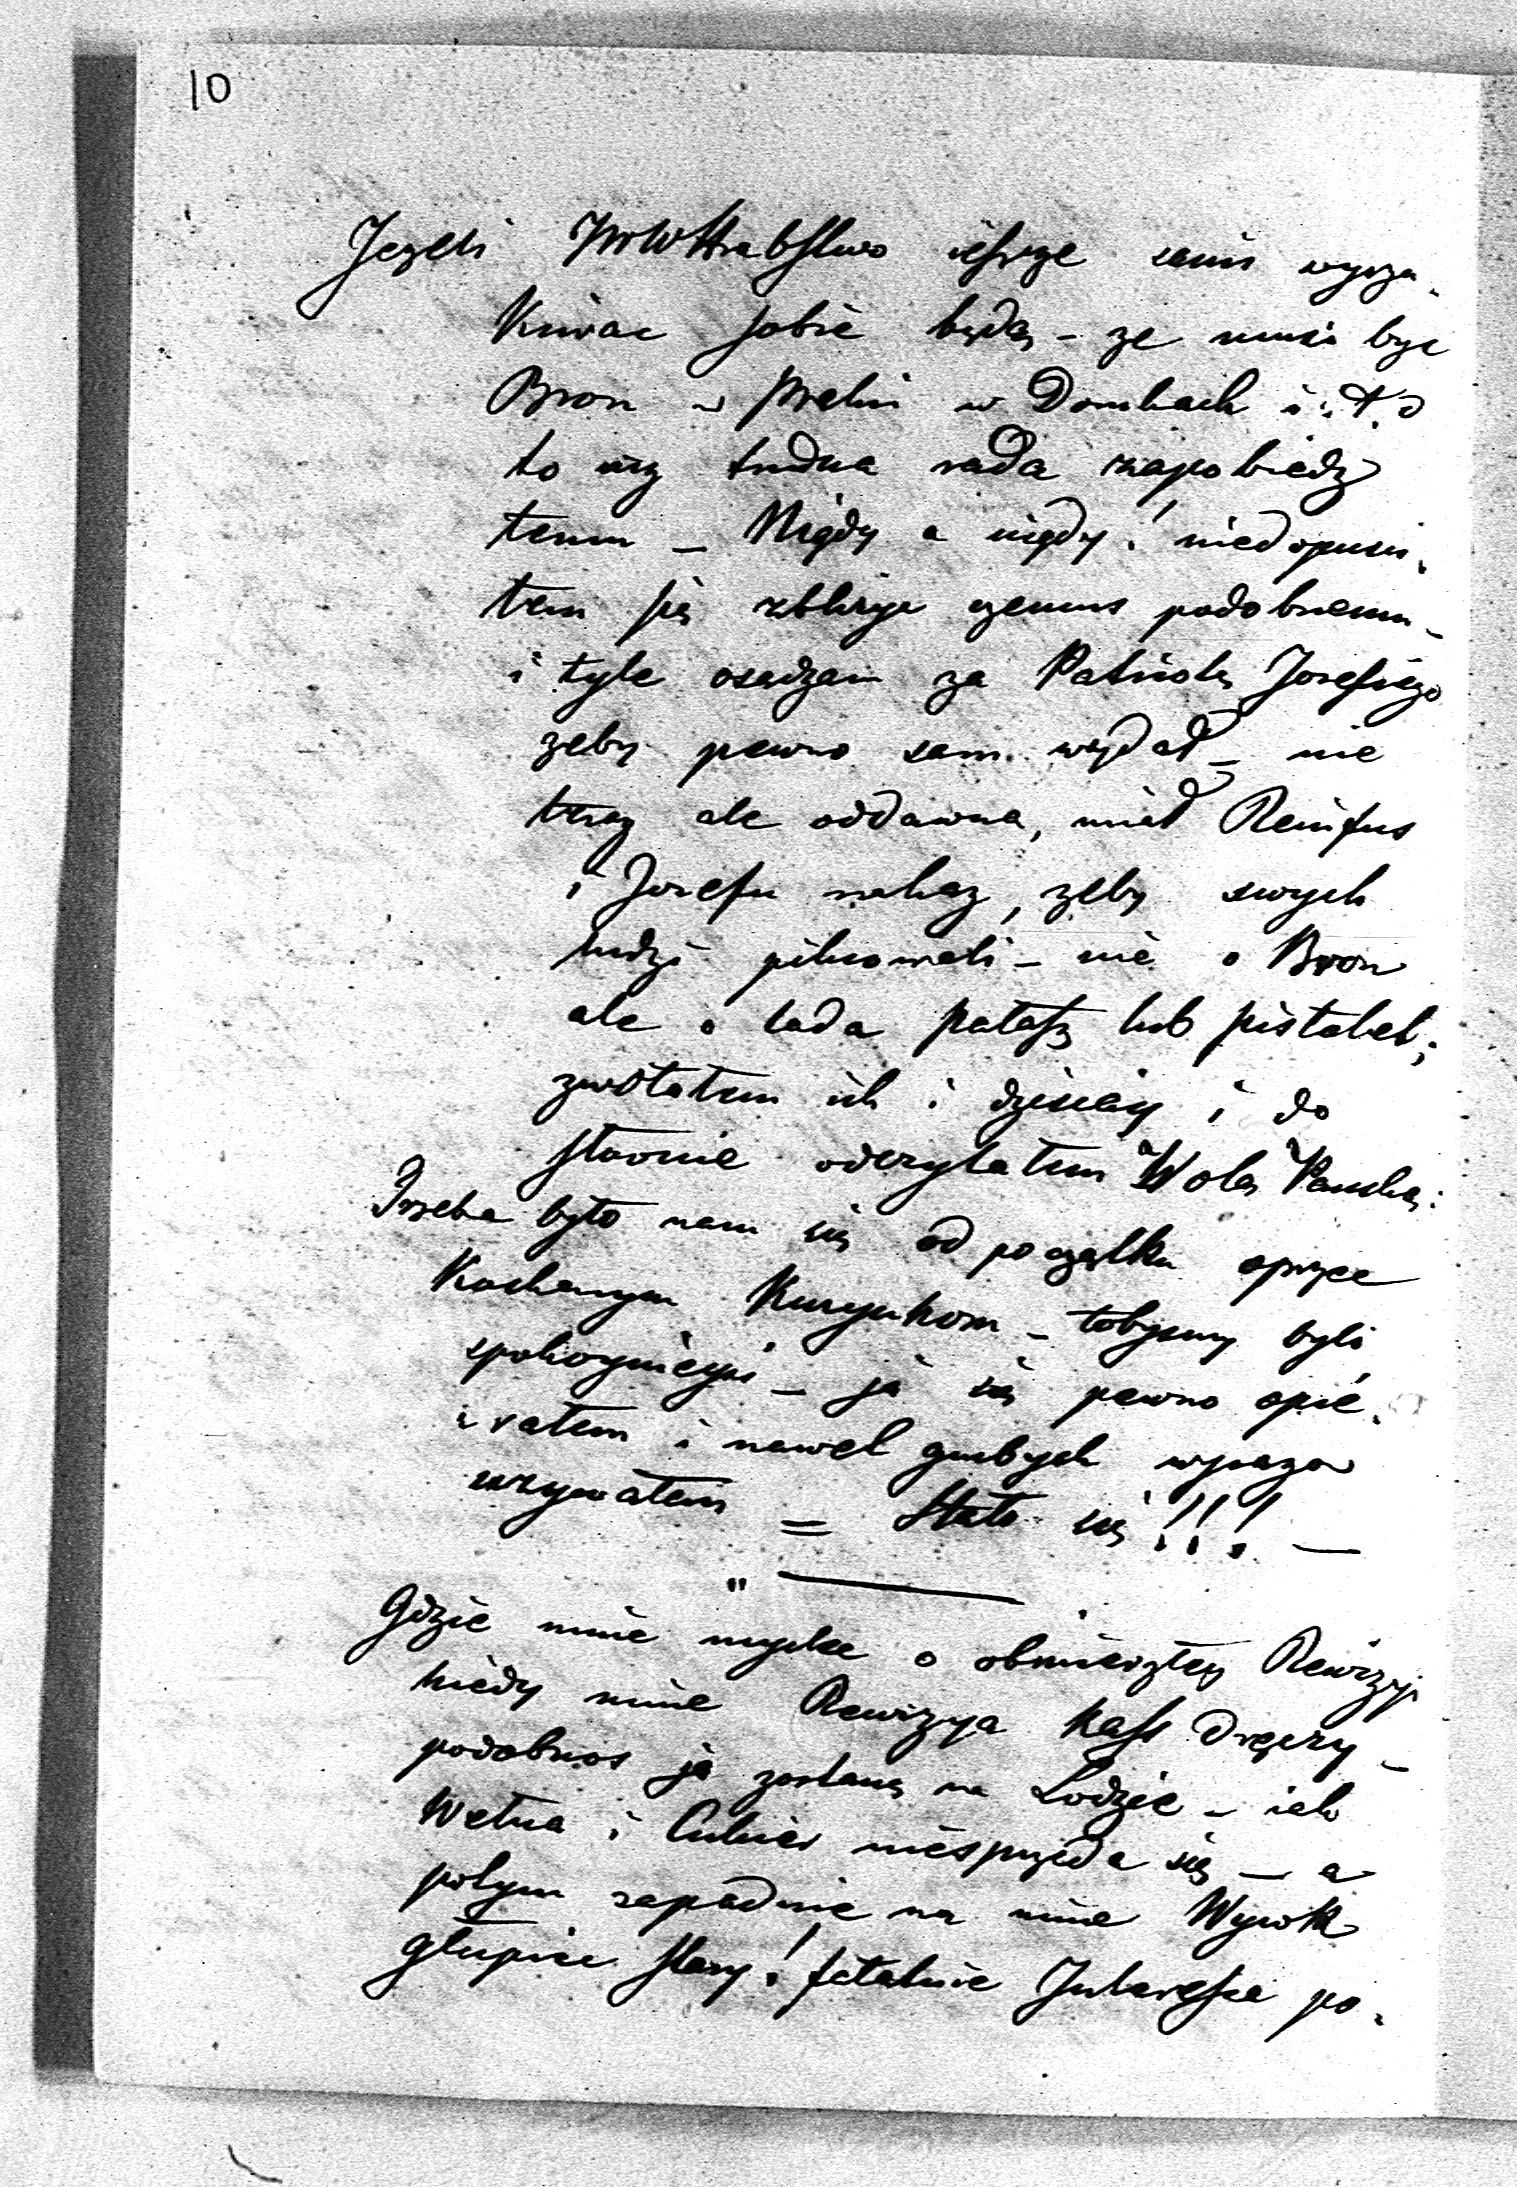 10
Jezeli JWWHrabstwo ieszcze sami wyszu-
kiwac sobie będą - ze musi byc
Bron w w Dombach i t. d
to my trudna rada zapobiedz
temu - Nigdy a nigdy! niedopusci-
łem się czemus podobnemu -
i tyle osądzam za Patriotę Jozefiego
zeby pewno sam wydał - nie
teraz ale oddawna, miał Reinfus
i Jozefu nakaz, zeby swych
ludzi pilnowali - nie o Bron
ale o lada pałasz lub pistolet;
zwołałem ich i dzisiay i do
słownie odczytałem Wolą Panską:
Trzeba było nam się od początku oprzec
Kochanym Kuzynkom - tobysmy byli
spokoynieysi - ja się pewno opie-
rałem i nawet grubych wyrazow
uzywałem = Stało się!!! -
"
Gdzie mnie myslec o obmierzłey Rewizyi
kiedy mnie Rewizya Kass dręczy -
podobnos ja zostanę na Lodzie - iak
Wełna i Cukier niesprzeda się - a
potym zapadnie na mnie Wyrok
głupiec stary! fatalnie Interessa po-